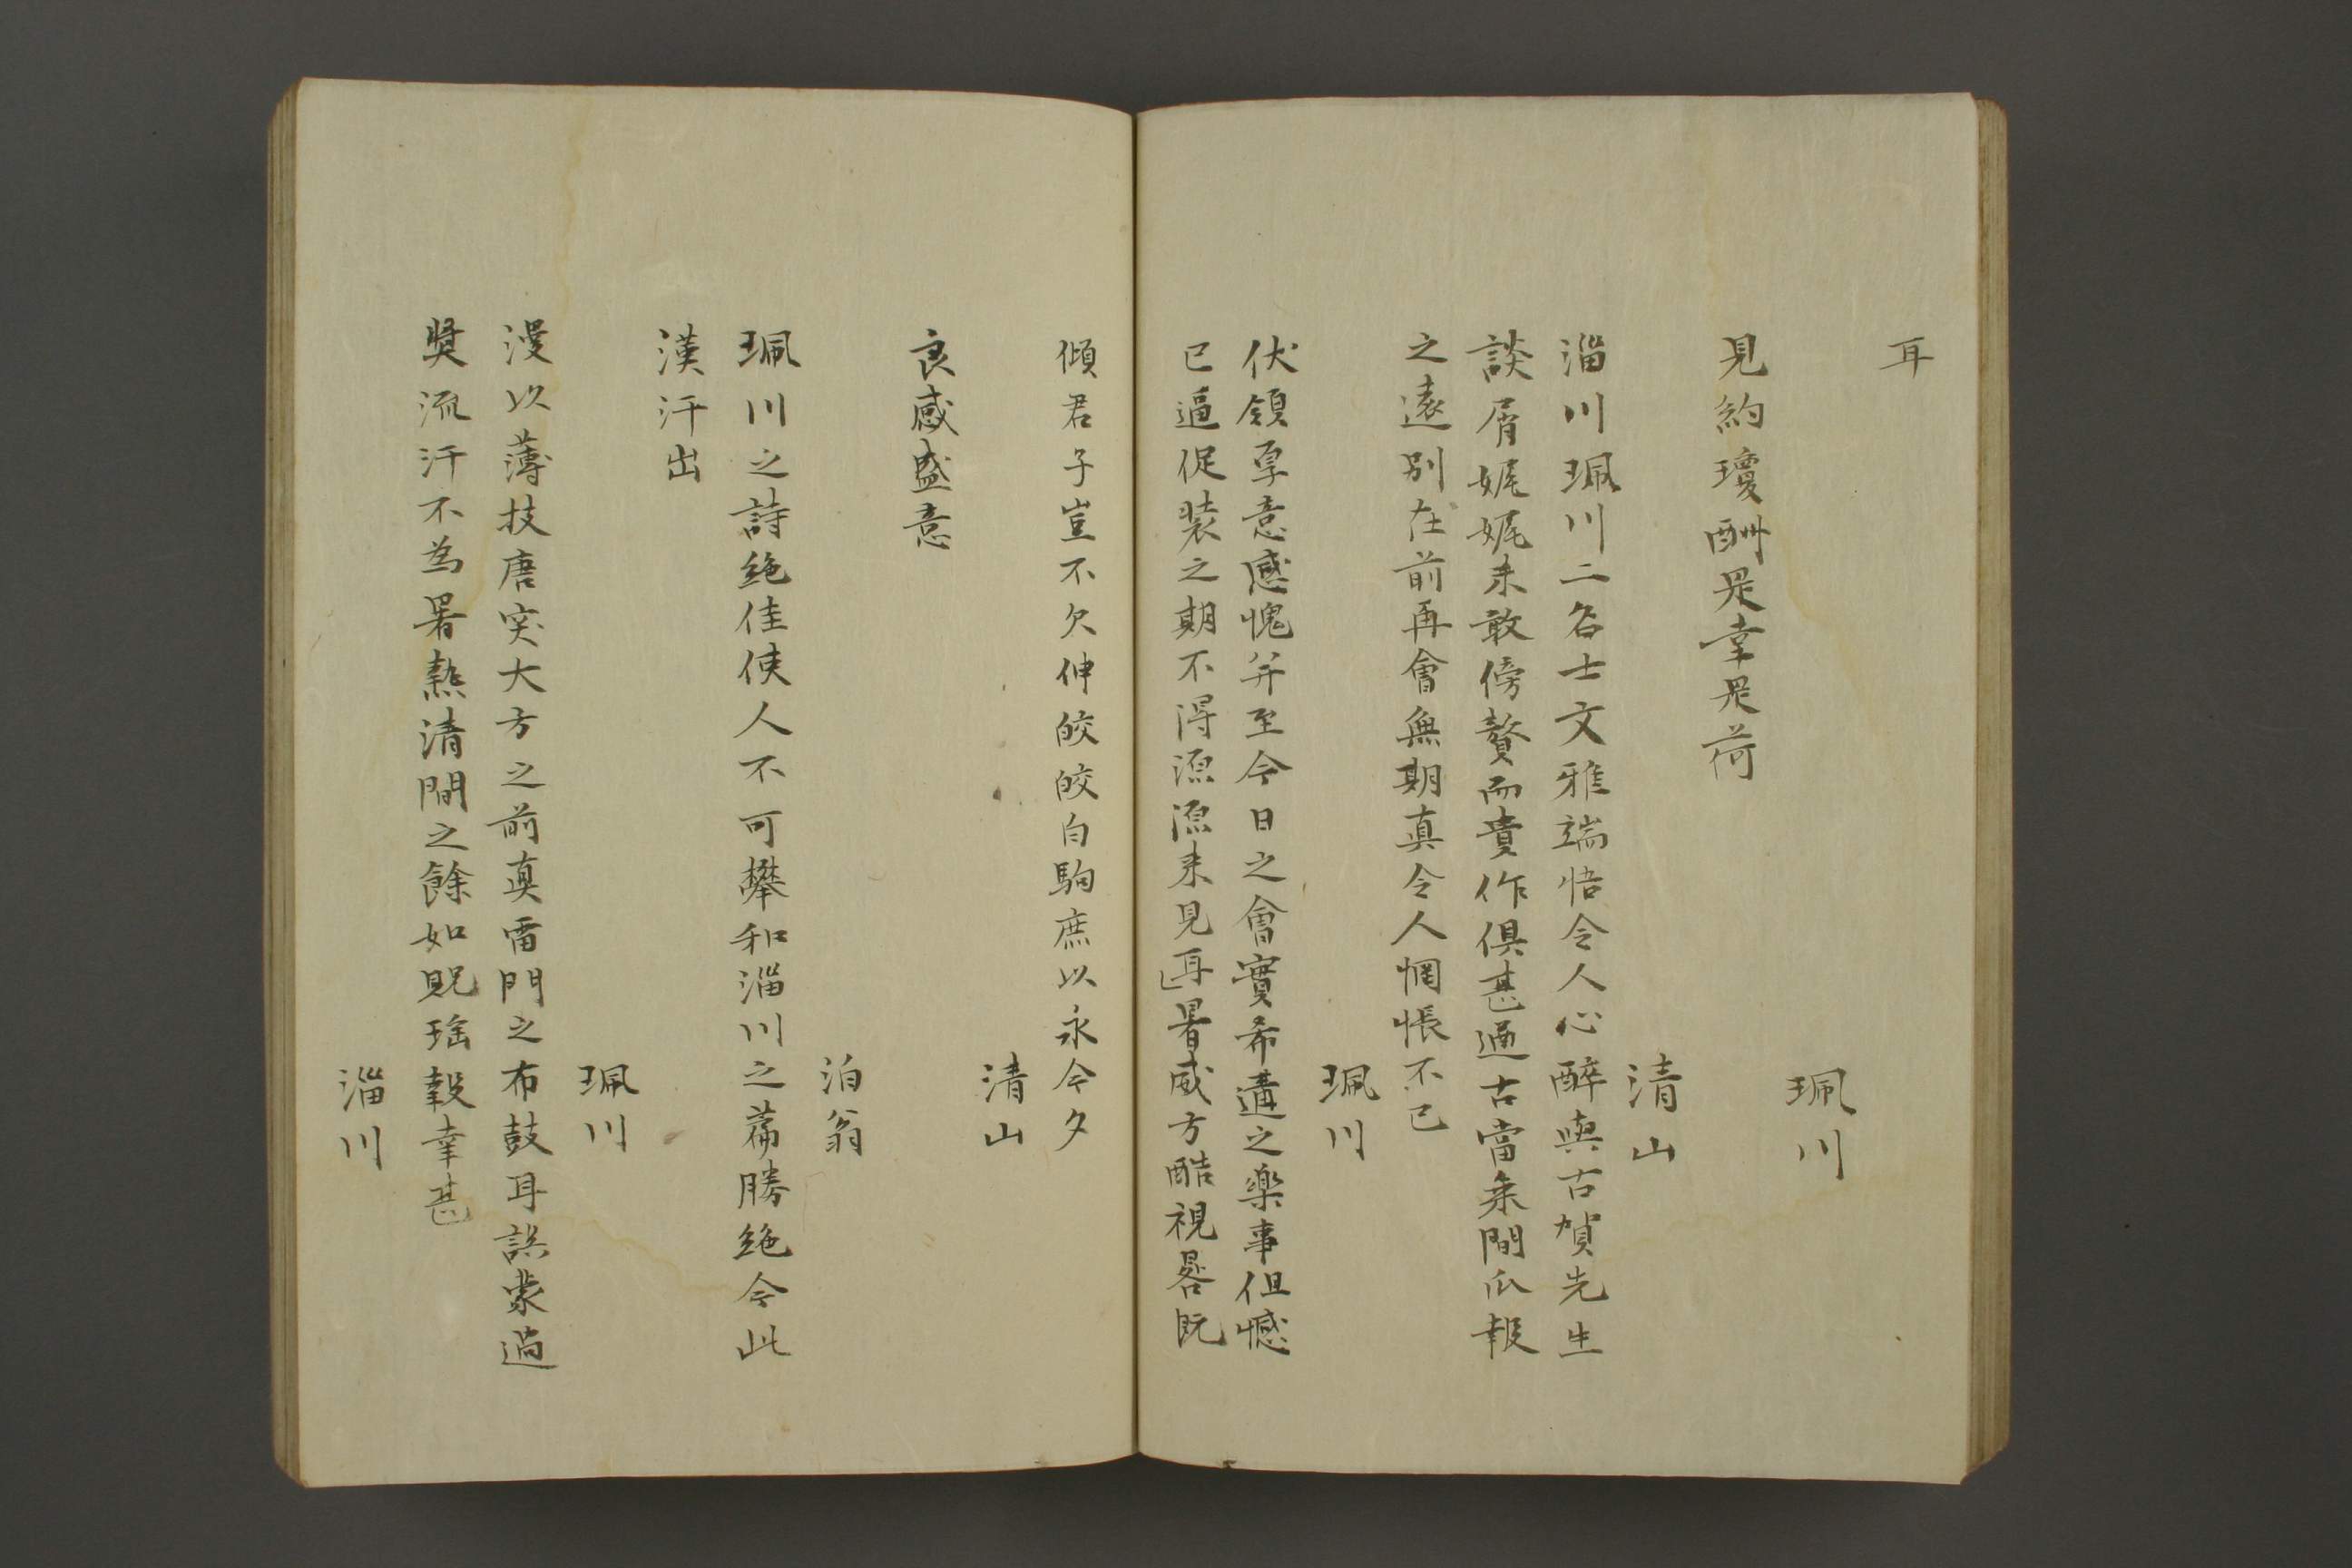 耳
珮川
見約瓊酬是幸是荷
清山
淄川珮川二名士文雅端悟令人心醉與古賀先生
談屑娓娓未敢傍贅而貴作俱甚逼古當釆間瓜報
之遠別在前再會無期真令人惘悵不已
珮川
伏領厚意感愧并至今日之會實希遘之楽事但憾
已逼促装之期不得源源来見耳暑威方酷視晷既
傾君子豈不欠伸皎皎白駒庶以永今夕
清山
良感盛意
泊翁
珮川之詩絶佳使人不可攀和淄川之蒂勝絶令此
漢汗出
珮川
漫以薄技唐突大方之前真雷門之布鼓耳誤蒙過
奬流汗不為暑熱清間之餘如貺瑤報幸甚
淄川